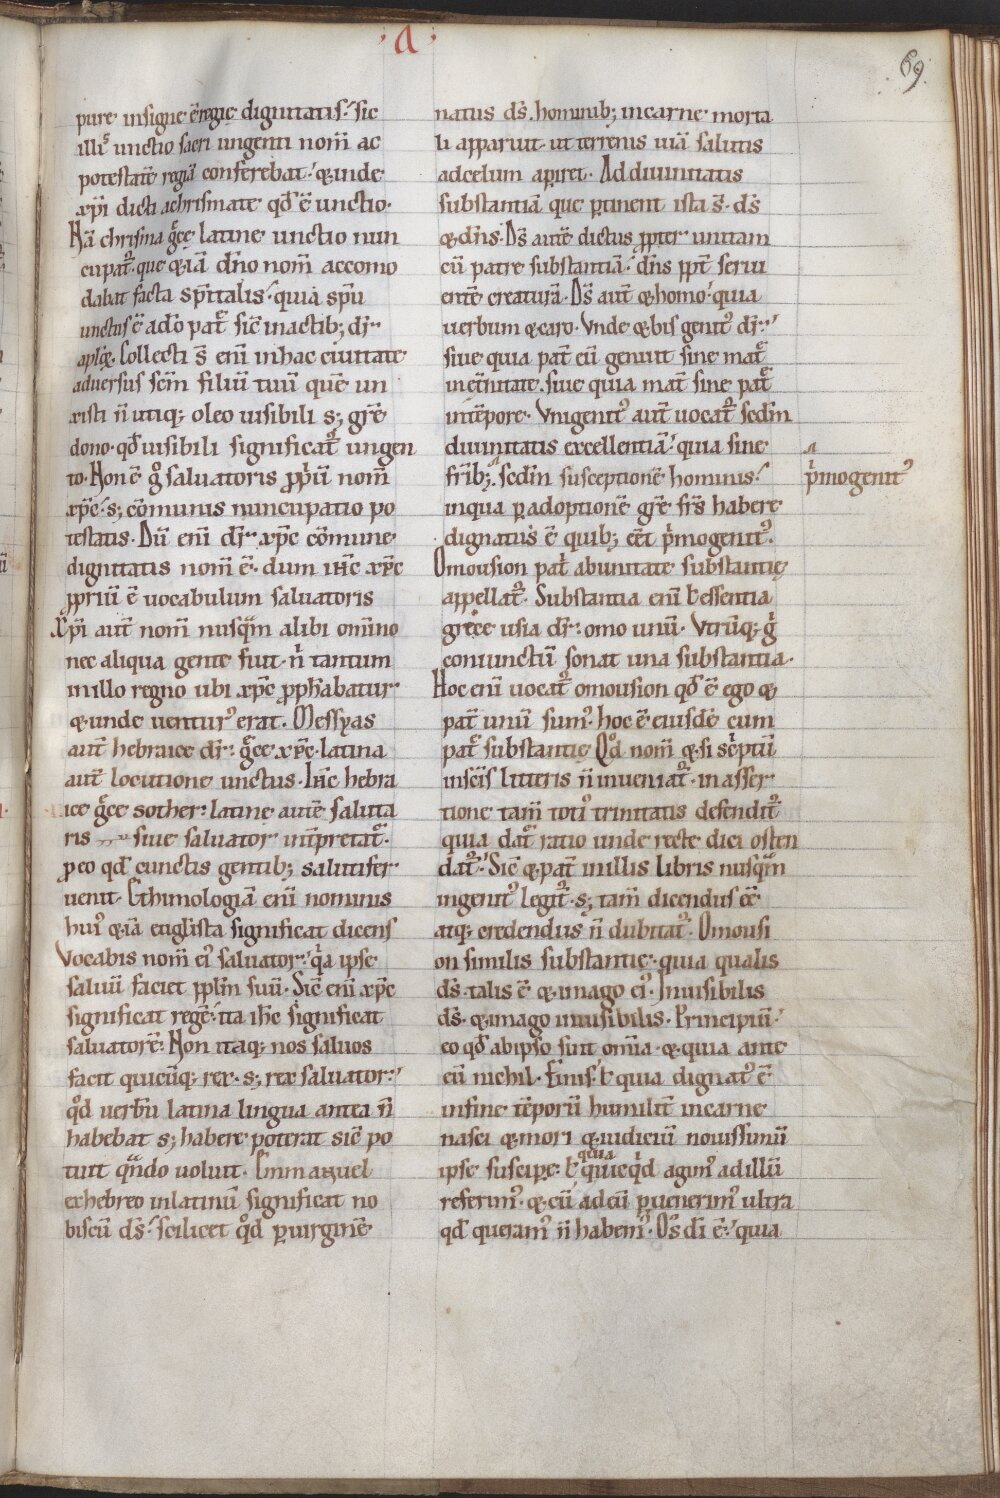 ·a·
69
pure insigne ē regię dignitatis; sic
illis unctio sacri ungenti nom̄ ac
potestatē regiā conferebat; & inde
xp̄i dicti a chrismate qđ ē unctio·
Nā chrisma grece latine unctio nun
cupat᷑· que & iā dn̄o nom̄ accomo
dabat facta sp̄italis; quia sp̄u
unctus ē a dō pat̄ sic̄ in actib; dr̄·
aplōꝝ· Collecti s̄ eni in hac ciuitate
adversus sc̄m filiū tuū quē un
xisti n̄ utiq; oleo uisibili s; gr̄ę
dono· qđ uisibili significat᷑ ungen
to· Non ē g̊ saluatoris ꝓpriū nom̄
xp̄c; s; cōmunis nuncupatio po
testatis· Dū eni dr̄ xp̄c cōmune
dignitatis nom̄ ē· dum ih̄c xp̄c
ꝓpriū ē uocabulum saluatoris
Xp̄i aut̄ nom̄ nusq̄m alibi om̄ino
nec aliqua gente fuit· n̄ tantum
in illo regno ubi xp̄c ꝓph̄abatur
& unde uentur᷒ erat· Messyas
aut̄ hebraice dr̄· grece xp̄c· latina
aut̄ locutione unctus· Ih̄c hebra
ice grece sother· latine autē saluta
ris siue saluator int̄pretat᷑·
ꝓ eo qđ cunctis gentib; salutifer
uenit· Ethimologiā eni nominis
hui᷒ & iā eug̅lista significat dicens
Vocabis nom̄ ei᷒ saluator; q̇a ipse
saluū faciet ppl̄m suū· Sic̄ eni xp̄c
significat regē; ita ih̄c significat
saluatorē· Non itaq; nos saluos
facit quicūq; rex· s; rex saluator;
qđ uerbū latina lingua antea n̄
habebat s; habere poterat sic̄ po
tuit q̄ndo uoluit· Emmanuel
ex hebreo in latinū significat no
biscū ds̄; scilicet qđ ꝑ uirginē
natus ds̄· hominib; in carne morta
li apparuit· ut terrenis uiā salutis
ad celum aꝑiret· Ad diuinitatis
substantiā que ꝑtinent ista s̄· ds̄
& dn̄s· Ds̄ autē dictus ꝓpter unitam
cū patre substantiā; dn̄s ꝓpt̄ serui
entē creaturā· Ds̄ aut̄ & homo; quia
uerbum & caro· Vnde & bis genit᷒ dr̄;
siue quia pat̄ eū genuit sine mat̄
in et̄nitate· siue quia mat̄ sine pat̄
in tēpore· Vnigenit᷒ aut̄ uocat᷑ sec̄dm
diuinitatis excellentiā; quia sine
frīb; sec̄dm susceptionē hominis;
p̄mogenit᷒
in qua ꝑ adoptionē gr̄ę fr̄s habere
dignatus ē quib; eēt p̄mogenit᷒·
Omousion pat̄ ab unitate substantię
appellat᷑· Substantia eni ł essentia
grece usia dr̄· omo unū· Vtrūq; g̊
coniunctū sonat una substantia·
Hoc eni uocat᷑ omousion qđ ē ego &
pat̄ unū sum᷒· hoc ē eiusdē cum
pat̄ substantię Qđ nom̄ & si sc̄ptū
in sc̄is litteris n̄ inueniat᷑· in asser
tione tam̄ toti᷒ trinitatis defendit᷑
quia dat᷑ ratio unde recte dici osten
dat᷑; Sic̄ & pat̄ in illis libris nusq̄m
ingenit᷒ legit᷑· s; tam̄ dicendus eē
atq; credendus n̄ dubitat᷑· Omousi
on similis substantię· quia qualis
ds̄ talis ē & imago ei᷒· Inuisibilis
ds̄· & imago inuisibilis· Principiū;
eo qđ ab ipso sunt om̄ia· & quia ante
eū nichil· Finis; ł quia dignat᷒ ē
in fine tēporū humilit̄ in carne
nasci & mori & iudiciū nouissimū
ipse suscipe· ł quia quicq̄d agim᷒ ad illū
referim᷒· & cū ad eū ꝑuenerim᷒ ultra
qđ queram᷒ n̄ habem᷒· Os dī ē; quia